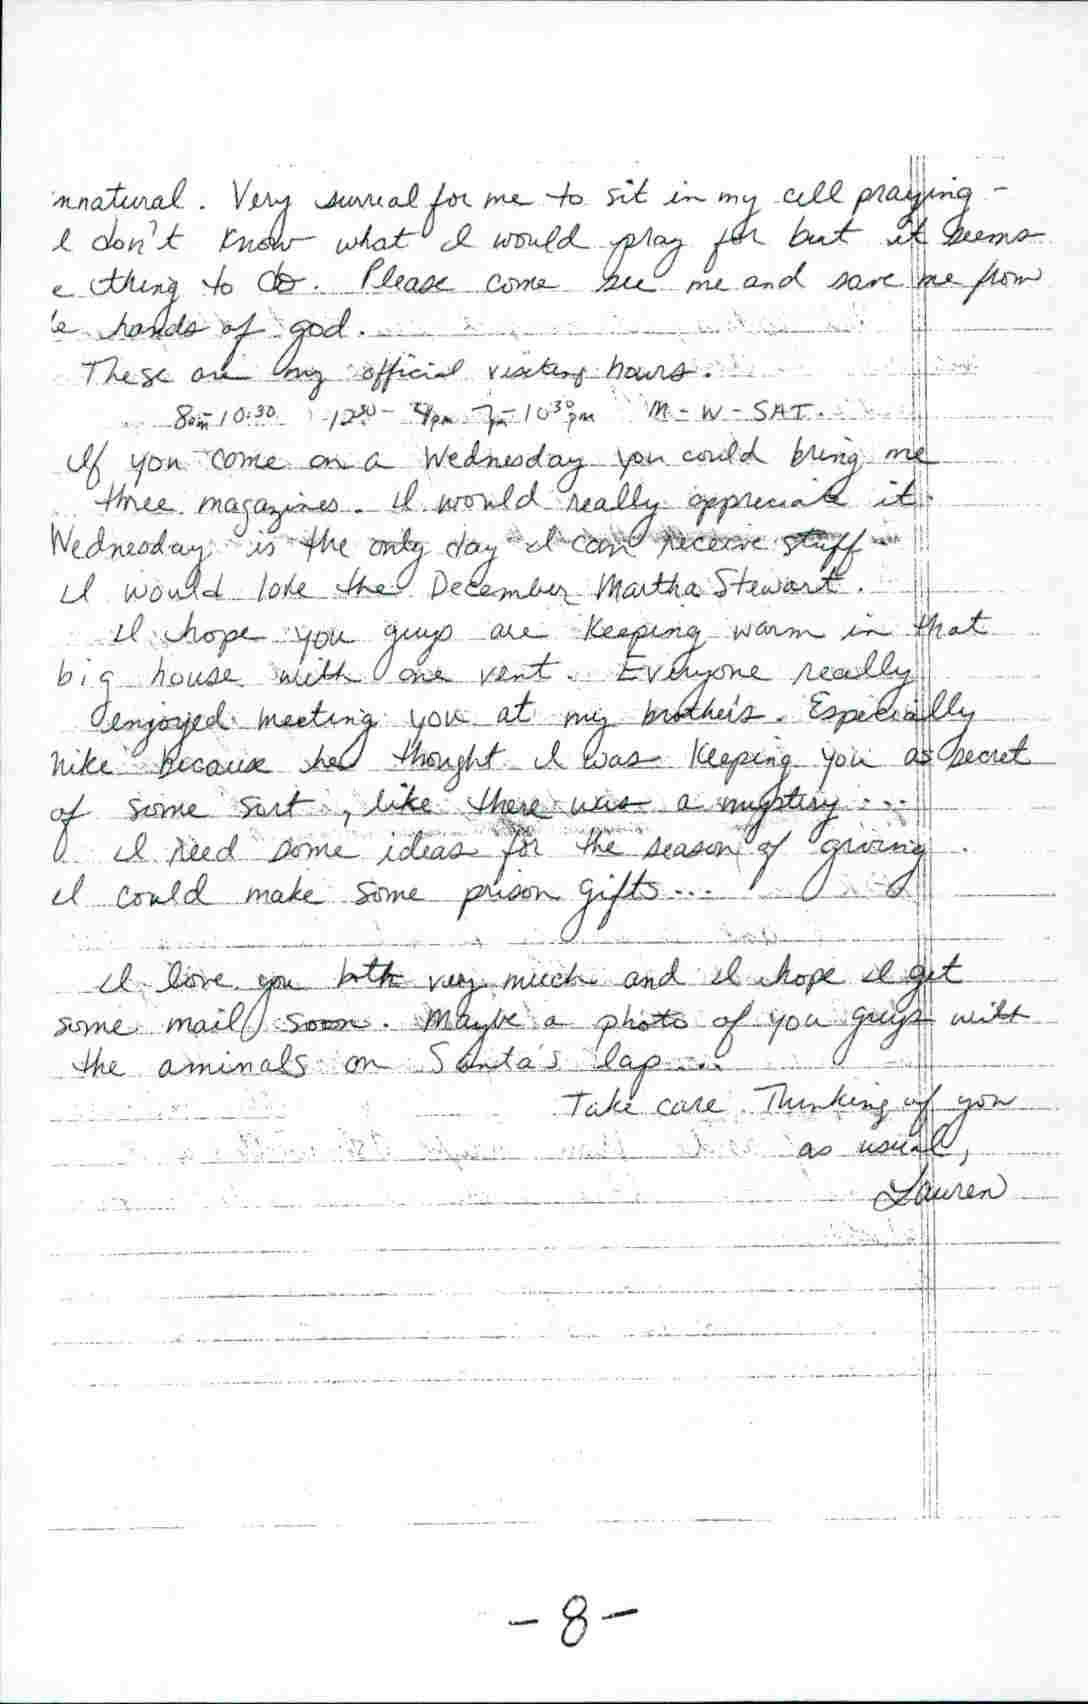 nnatural. Very surreal for me to sit in my cell praying -
I don't know what I would pray for but it seems
e thing to do. Please come see me and save me from
e hands of god.
These are my official visiting hours.
8am-10:30 12:30-4pm 7pm-10:30pm M-W-SAT.
If you come on a Wednesday you could bring me
three magazines. I would really appreciate it.
Wednesday is the only day I can receive stuff-
I would love the December Martha Stewart.
I hope you guys are keeping warm in that
big house with one vent. Everyone really
enjoyed meeting you at my brother's. Especially
Mike because he thought I was keeping you as secret
of some sort, like there was a mystery...
I need some ideas for the season of giving.
I could make some prison gifts...
I love you both very much and I hope I get
some mail soon. Maybe a photo of you guys with
the aminals on Santa's lap...
Take care. Thinking of you
as usual,
Lauren
-8-